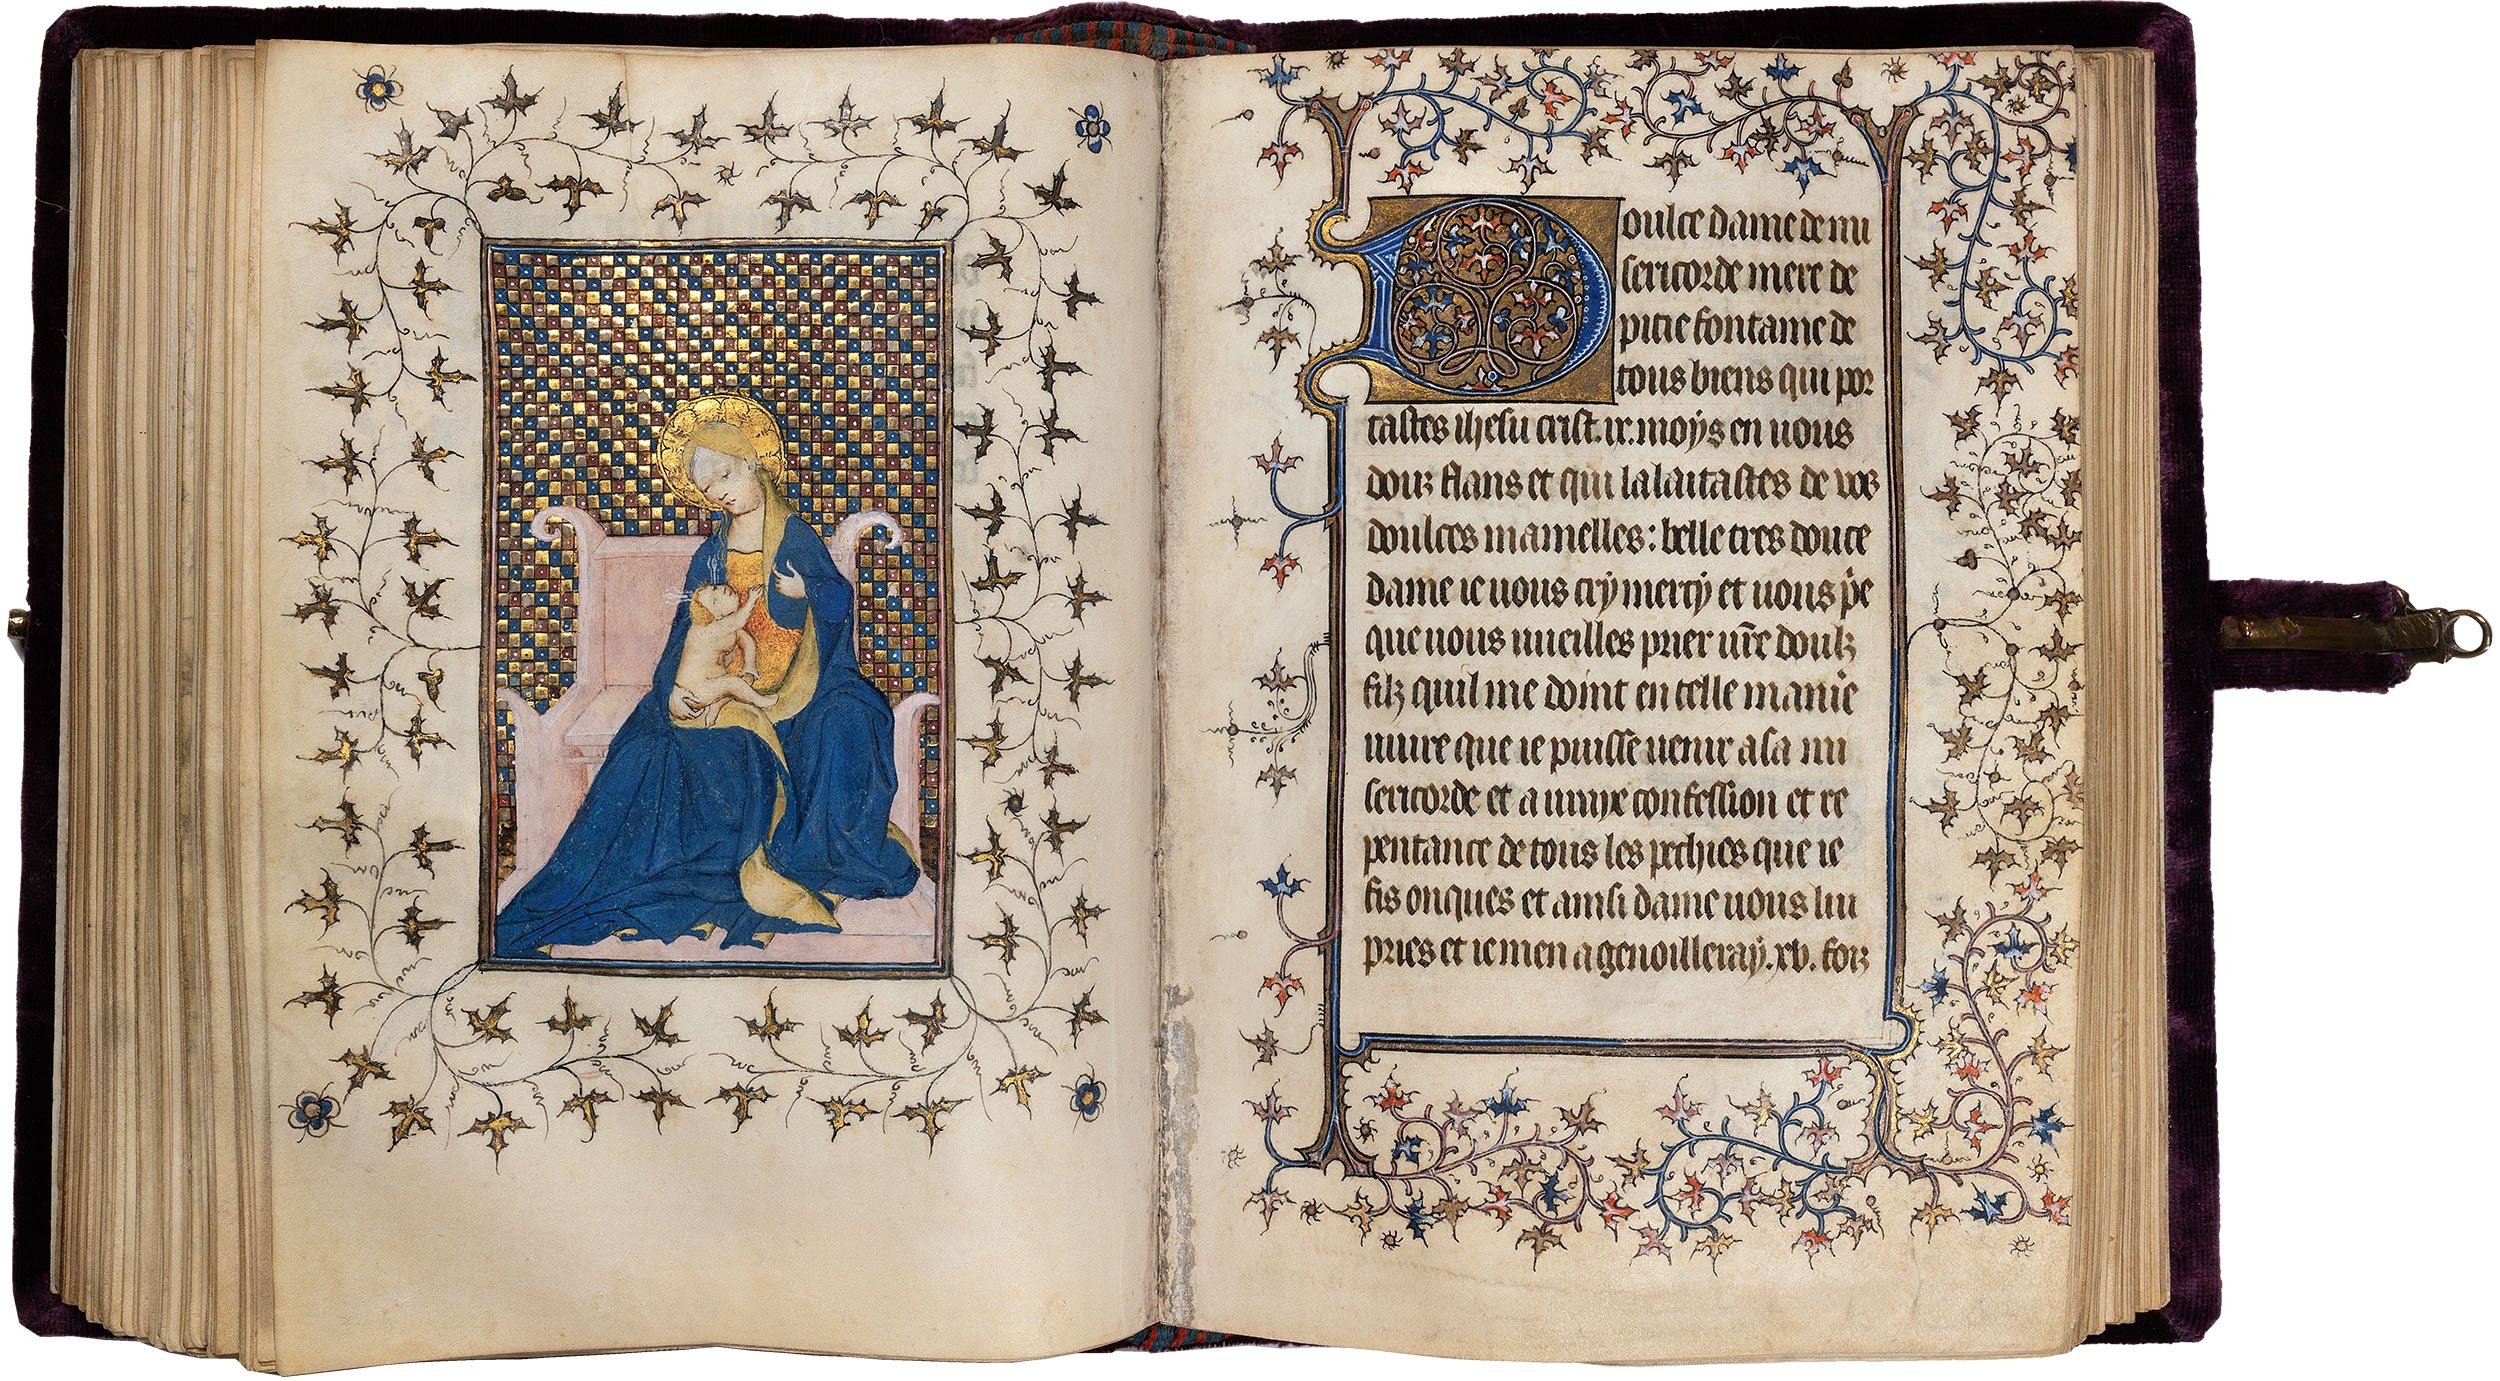 Doulce dame de mi
sericorde mere de
pitie fontaine de
tous biens qui por
tastes ihesu crist .ix. moys en uous
doulz flans et qui lalaitastes de voz
doulces mamelles : belle tres doulce
dame ie uous cry mercy et uous pͥe
que uous uueilles prier ur̄e doulz
filz quil me doint en telle manie
uiure que ie puisse uenir a sa mi
sericorde et a uraye confession et re
pentance de tous les pechies que ie
fis onques et ainsi dame uous sup
pries et ie men agenoilleray .xv. foiz